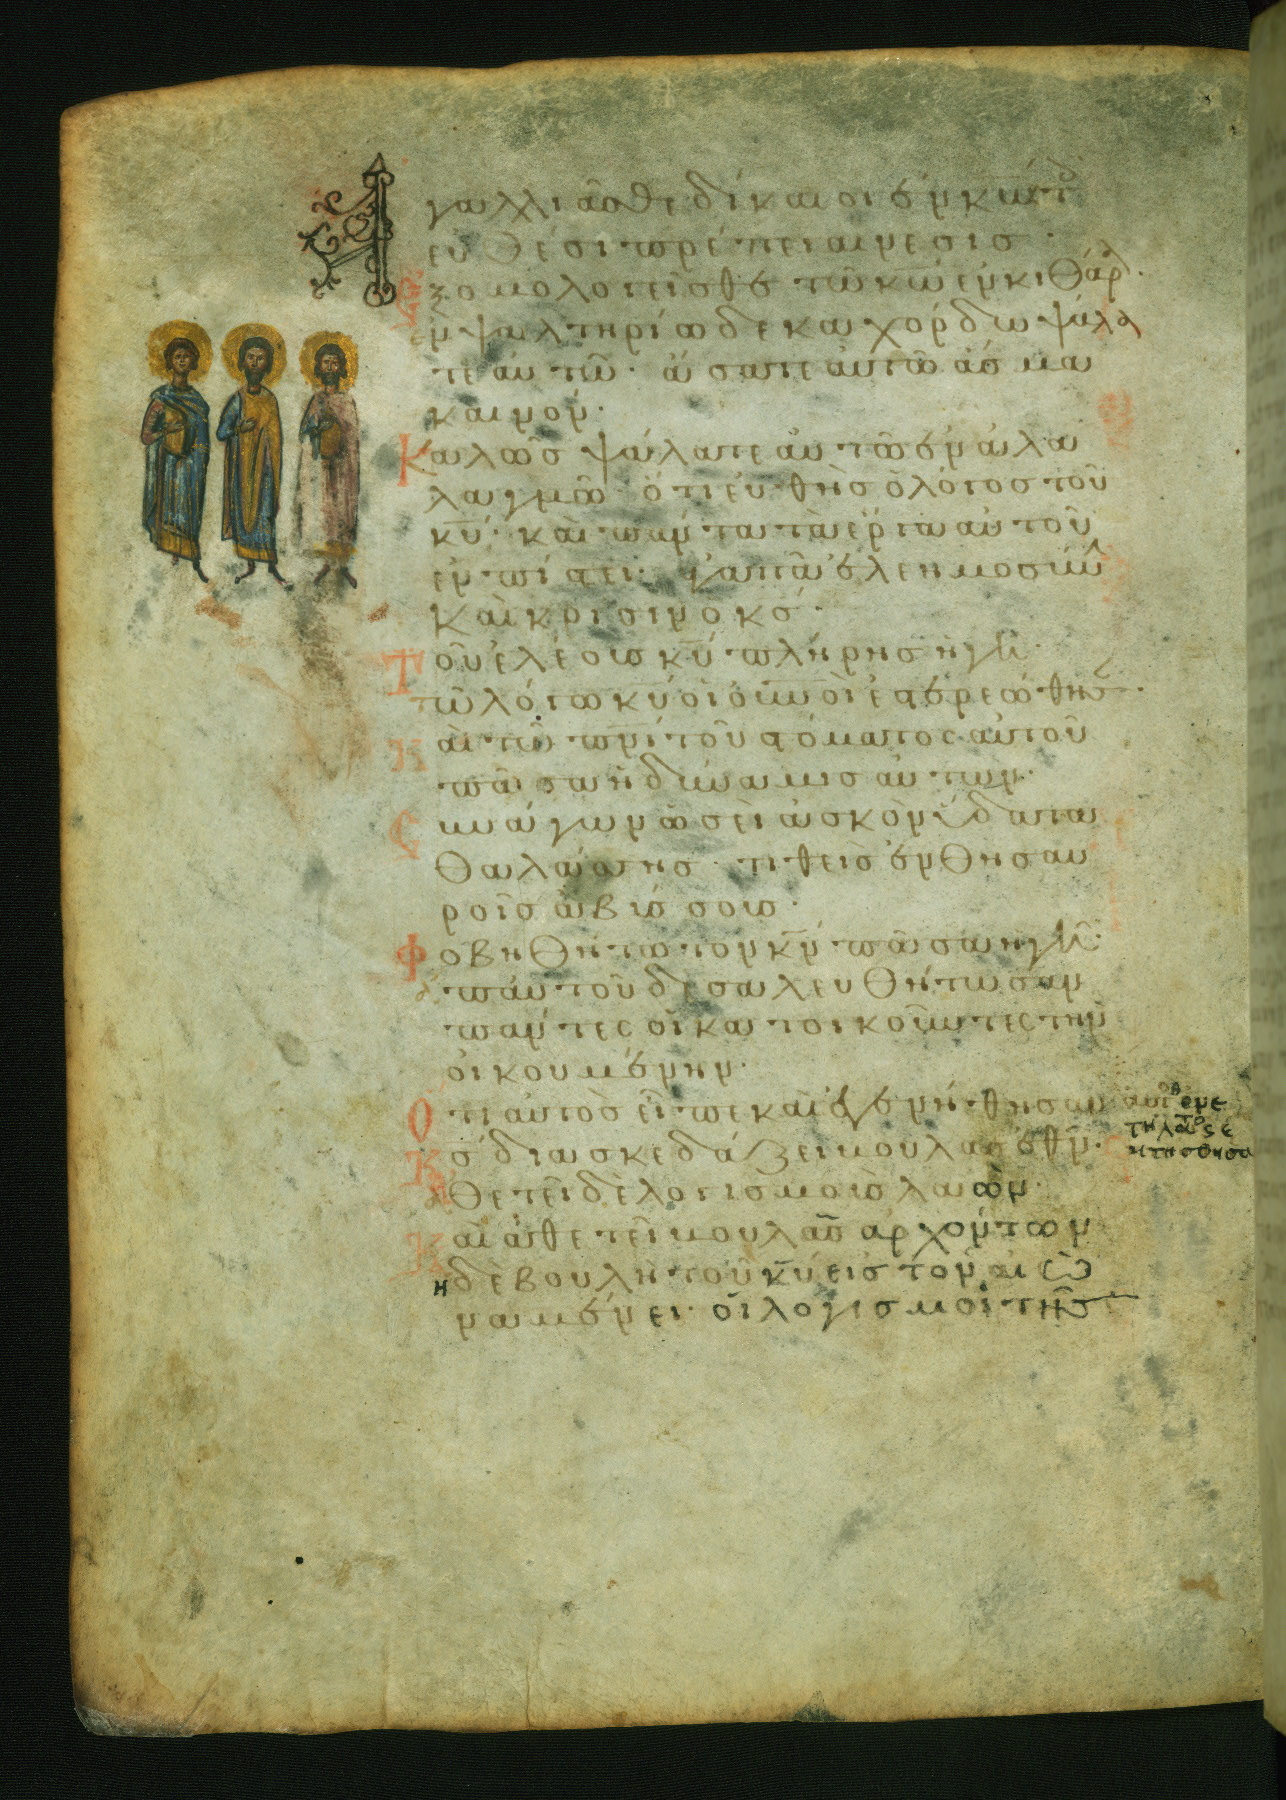 Ἀγαλλιᾶσθε δίκαιοι ἐν κω τ
εὐθέσι πρέπει αινεσισ ·
Εξομολογεῖσθε τῶ κω ἐν κιθάρ ·
ἐν ψαλτηρίω δεκαχόρδω ψάλα
τε αυτῶ · ἄσατε αὐτῶ ἄσμα
καινόν ·
Καλῶσ ψάλατε αὐτῶ ἐν ἀλα
λαγμῶ ὅτι εὐθὴσ ὁ λόγοσ τοῦ
κυ · καὶ πάντα τὰ ἔργα αὐτοῦ
ἐν πίστει · ἀγαπᾶ ἐλεημοσύν
καὶ κρίσιν ὁ κσ ·
Τοῦ ἐλέουσ κυ πλήρησ ἡ γῆ ·
τῶ λόγω κυ οἱ οὐνοὶ ἐστερεώθησ ·
Καὶ τῶ πνι τοῦ στόματος αὐτοῦ
πᾶσα ἡ δύναμισ αὐτῶν ·
Συνάγων ὡσεὶ ἀσκὸν ὕδατα
θαλάσσησ · τιθεὶσ ἐν θησαυ
ροῖσ ἀβύσσουσ ·
Φοβηθήτω τὸν κν πᾶσα ἡ γῆ ·
ἀπ αὐτοῦ δὲ σαλευθήτωσαν
πάντες οἱ κατοικοῦντες τὴν
οἰκουμένην ·
Ὅτι αὐτὸσ εἶπε καὶ ἐγενήθησαν αυτο ενε
τηλατο κ ε
κτησθησα
Κσ διασκεδάζει βουλὰσ ἐθν ·
ἀθετεῖ δὲ λογισμοὺσ λαῶν ·
Καὶ ἀθετεῖ βουλὰσ ἀρχόντων
η δὲ βουλὴ τοῦ κυ εἰσ τὸν αἰῶ
να μένει · οἱ λογισμοὶ τῆσ